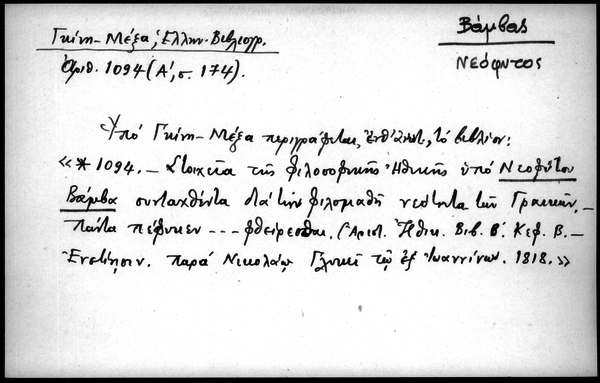 Γκίνη-Μέξα, Ἑλλην. Βιβλιογρ.
Βάμβας
Ἀριθ. 1094 (Α', σ. 174).
Νεόφυτος
Ὑπό Γκίνη-Μέξα περιγράφεται, ἐνθ' ἀνωτ., τό βιβλίον:
«*1094.— Στοιχεῖα τῆς φιλοσοφικῆς Ἠθικῆς ὑπό Νεοφύτου
Βάμβα συνταχθέντα διά τήν φιλομαθῆ νεότητα τῶν Γραικῶν.—
Ταῦτα πέφυκεν --- φθείρεσθαι. (Ἀριστ. Ἠθικ. Βιβ. Β'. Κεφ. Β.—
Ἐνετίῃσιν. παρά Νικολάῳ Γλυκεῖ τῷ ἐξ Ἰωαννίνων. 1818.»